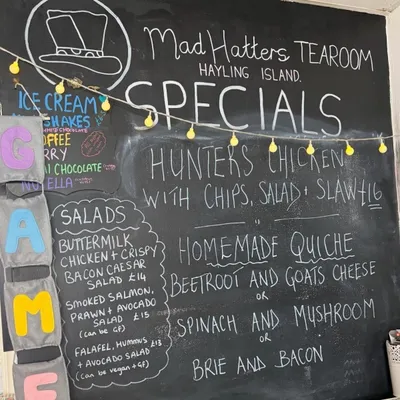 Mad Hatters TEAROOM
HAYLING ISLAND.
SPECIALS
ICE CREAM
SHAKES
CHOCOLATE
CHOCOLATE
NUTELLA
GAME
HUNTERS CHICKEN
WITH CHIPS, SALAD + SLAW £16
HOMEMADE QUICHE
BEETROOT AND GOATS CHEESE
or
SPINACH AND MUSHROOM
or
BRIE AND BACON
SALADS
BUTTERMILK
CHICKEN + CRISPY
BACON CAESAR
SALAD £14
SMOKED SALMON,
PRAWN + AVOCADO
SALAD £15
(can be GF)
FALAFEL, HUMMUS £13
+ AVOCADO SALAD
(can be vegan + GF)